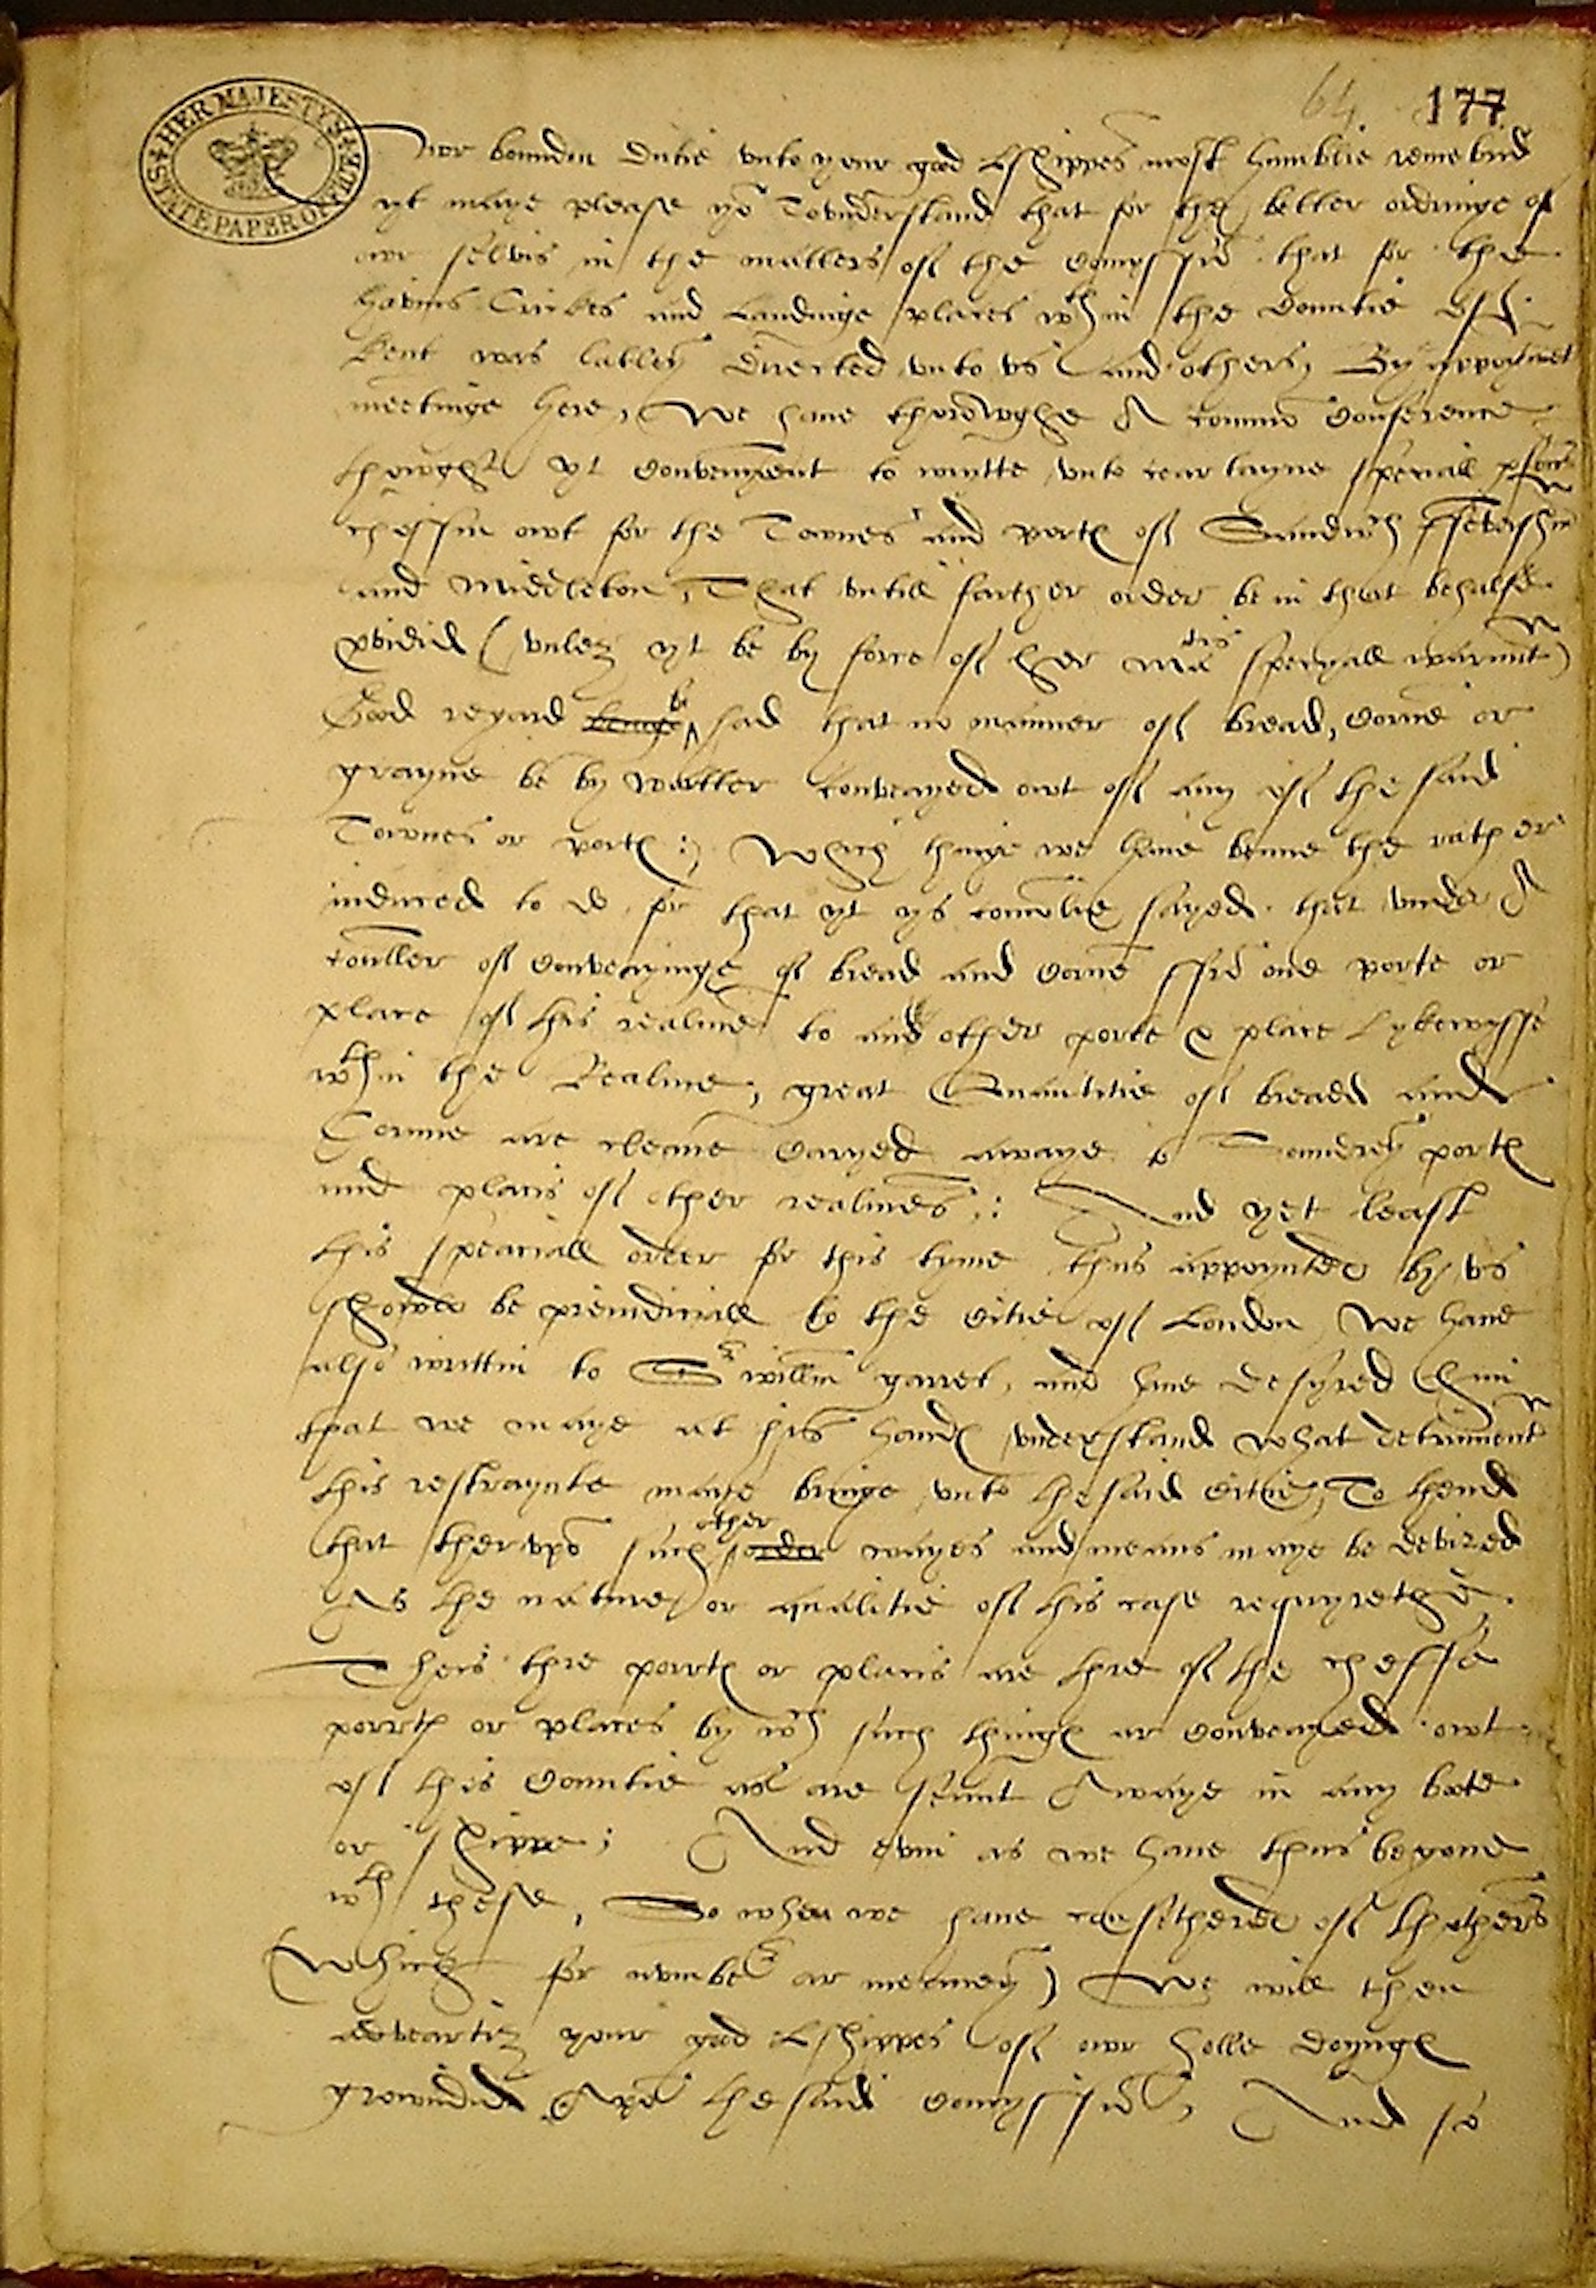 HER MAJESTY'S STATE PAPER OFFICE
64 177
Owr bounden dutie vnto your good Lshippes most humblie remebrid
yt maye please yor Tovnderstand that for the better ordringe of
owr selvis in the matters of the Comyssio that for the
havins Crickes and Landinge places wth in the Countie of
Kent was latley directed vnto vs and others, By appoyntmet
meetinge here, We have thorowghe A commo Conference
thowght yt Convenyent to wrytte vnto cear tayne speciall psons
chossin owt for the Townes and portes of Sandwch Feversham
and Middleton, That vntill farther order be in that behalfe
pvidid (vnlez yt be by force of her Matis specyall warrant)
Good regard be had that no manner of bread, Corne or
grayne be by watter conveayed owt of any of the said
Townes or portes :, Which thinge we have benne the rather
induced to do, for that yt ys comolie sayed that vnder A
couller of Conveayinge of bread and Corne fro one porte or
place of this realme to and other porte & place Lykewysse
wth in the Realme, great Quantitie of bread and
Corne are cleane Caryed awaye to Sonderey portes
and placis of other realmes : And yet least
this speaciall order for this tyme thus appoynted by vs
showld be preiudiciall to the Citie of London, We have
also writtin to Sr willm garret, and have desyred him
that we maye at his handes vnderstand what detriment
this restraynte maye bringe vnto the said Citie, To thend
that thervpo such other wayes and means maye be devized
As the nature or qualitie of this case requyrethe.
Theis thre portes or placis are thre of the cheffe
porrtes or places by wch such thinges ar Conveayed owt
of this Countie as are sennt Awaye in any bote
or shippe ; And evin as we have thus begone
wth these, So when we have consithered of thothers
(Which for nomber ar meaney) We will then
adveartiz your good Lshippes of owr holle doynges
growndid Apo the said Comyssio, And so